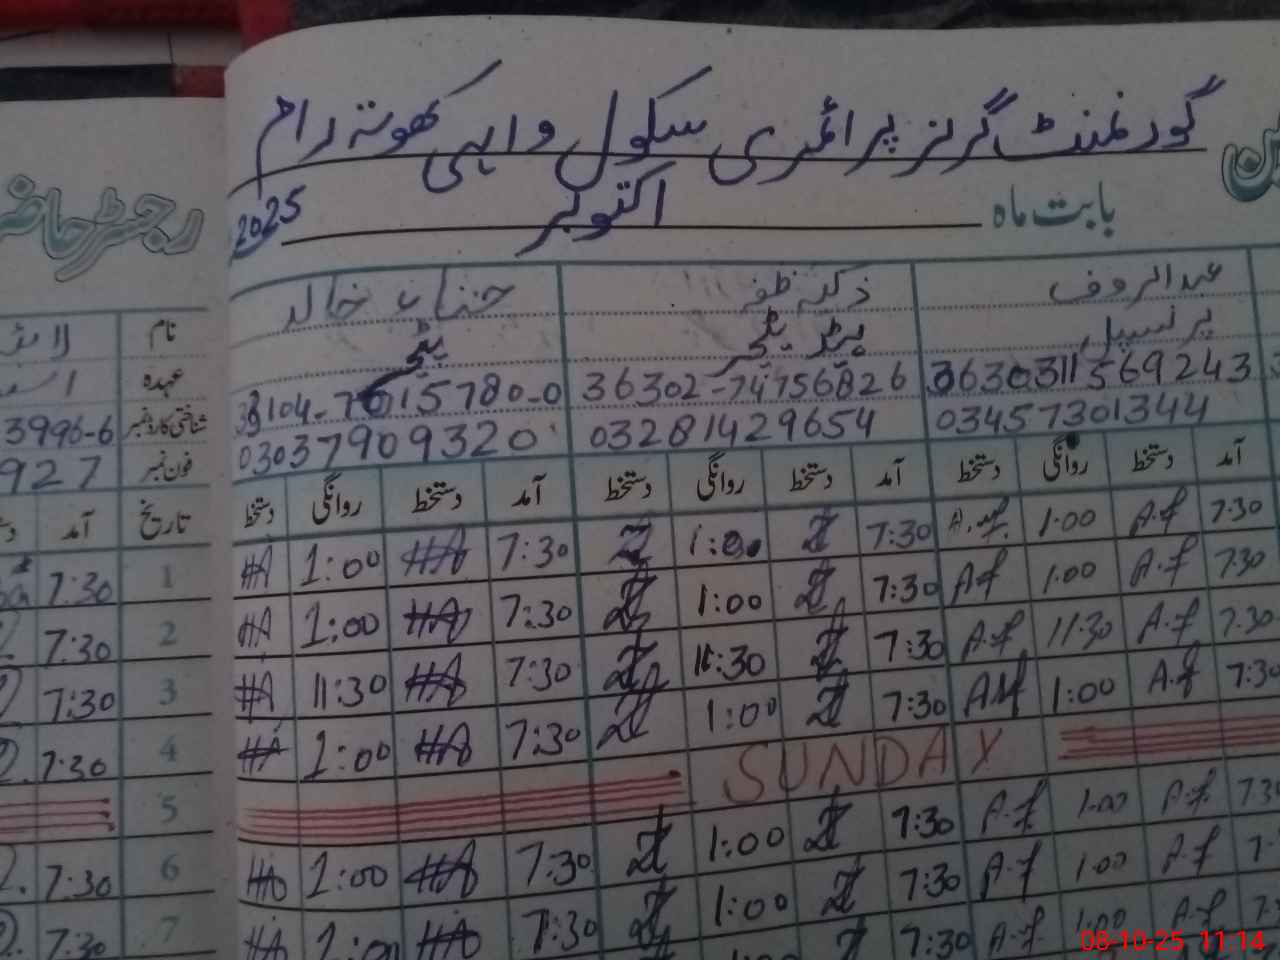 گورنمنٹ گرلز پرائمری سکول واہی کھوتہ رام
بابت ماہ اکتوبر 2025
رجسٹر حاضری
عبدالرؤف ذکیہ ظفر خالد
نام
پرنسپل ہیڈ ٹیچر ٹیچر
عہدہ
36302-74756826
شناختی کارڈ نمبر 3996-6
03457301344 03281429654 03037909320
فون نمبر 927
آمد دستخط روانگی دستخط آمد دستخط روانگی دستخط آمد دستخط روانگی دستخط
تاریخ آمد
7:30 A.f 1:00 7:30 Z 1:00 Z 7:30 HA 1:00 HA
1 7:30
7:30 A.f 1:00 A.f 7:30 Z 1:00 Z 7:30 HA 1:00 HA
2 7:30
7:30 A.f 11:30 A.f 7:30 Z 11:30 Z 7:30 HA 11:30 HA
3 7:30
7:30 A.f 1:00 7:30 Z 1:00 Z 7:30 HA 1:00 HA
4 7:30
SUNDAY
5
7:30 A.f 1:00 A.f 7:30 Z 1:00 Z 7:30 HA 1:00 HA
6 7:30
A.f 1:00 A.f 7:30 Z 1:00 Z 7:30 HA 1:00 HA
7 7:30
A.f 1:00 A.f 7:30
08-10-25 11:14